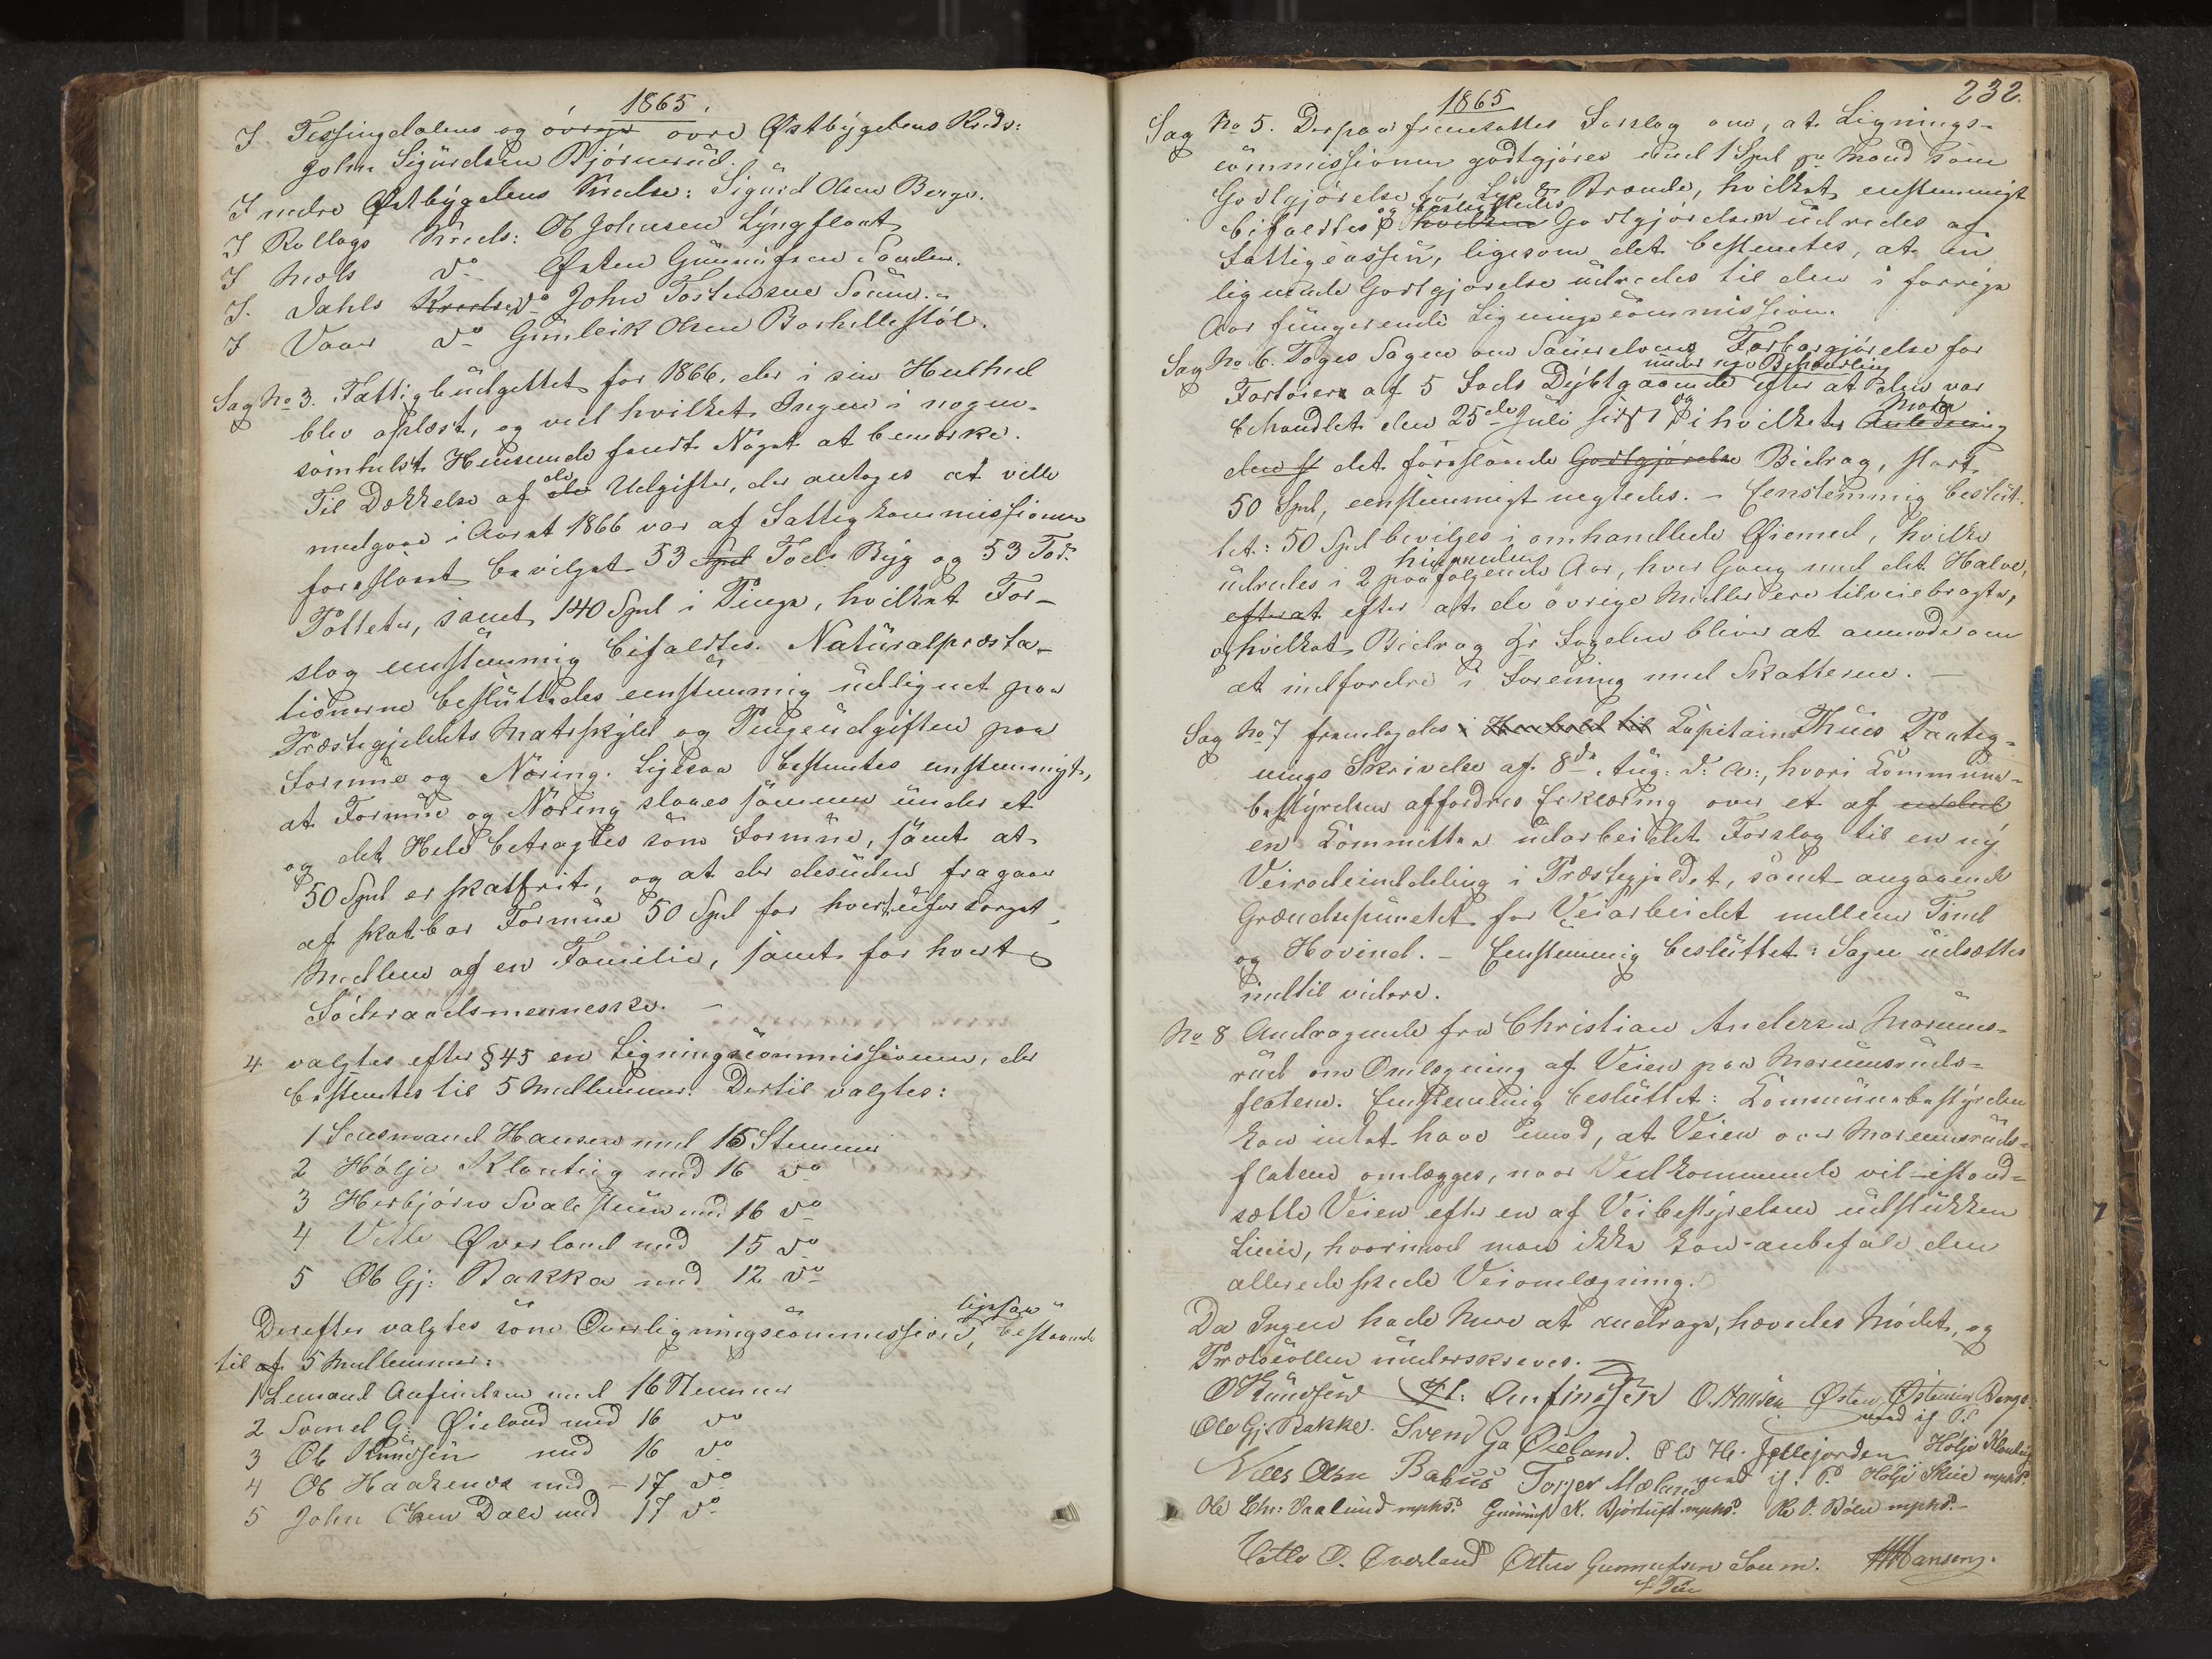 1865.
I Tessungdalens og övre övre Østbygdens Kreds:
John Sigurdsen Bjørnerud.
I nedre Østbygdens Kreds: Sigurd Olsen Berge.
I Rollags Kreds: Ole Johnsen Lyngflaat
I Mæls do Østen Gunnufsen Sanden.
I Dahls Kreds do John Tostensen Soum.
I Vaaer do Gunleik Olsen Baskillestöl.
Sag No 3. Fattigbudgettet for 1866, der i sin Helhed
blev oplæst, og ved hvilket Ingen i nogen-
somhelst Henseende fandt Noget at bemærke.
Til Dækkelse af de de Udgifter, der antages at ville
medgaae i Aaret 1866 var af Fattigkommissionen
foreslaaet bevilget 53 Spd Tdr Byg og 53 Tdr
Poteter, samt 140 Spd i Penge, hvilket For-
slag eenstemmig bifaldtes. Naturalpræsta-
tionerne besluttedes eenstemmig udlignet paa
Præstegjeldets Matrskyld og Pengeudgiften paa
Formue og Næring. Ligesaa bestemtes eenstemmigt,
at Formue og Næring slaaes sammen under et
og det Hele betragtes som Formue, samt at
50 Spd er skatfrit, og at der desuden fragaaer
af skatbar Formue 50 Spd for hvert uforsørget
Medlem af en Familie, samt for hvert
Föderaadsmenneske. —
4 valgtes efter § 45 en Ligningscommissionen, der
bestemtes til 5 Medlemmer. Dertil valgtes:
1 Lensmand Hansen med 16 Stemmer
2 Hölje Klonteig med 16 do
3 Herbjörn Svalesteen med 16 do
4 Vetle Øverland med 15 do
5 Ole Gj: Bakka med 12 do
ligesaa
Derefter valgtes som Overligningscommission, bestaaende
til af 5 Medlemmer:
1 Lensmand Anfindsen med 16 Stemmer
2 Svend G: Øieland med 16 do
3 Ole Knudsen med 16 do
4 Ole Haakenes med - 17 do
5 John Olsen Dale med 17 do
232.
1865
Sag No 5. Derpaa fremsattes Forslag om, at Lignings-
commissionen godtgjöres med 1 Spd pr Mand som
Godtgjörelse for Lys & Brænde, hvilket eenstemmigt
og besluttedes
bifaldtes, hvilken Godtgjörelse udredes af
Fattigcassen, ligesom det bestemtes, at en
lignende Godtgjörelse udredes til den i forrige
Aar fungerende Ligningscommission.
Sag No 6. Toges Sagen om Sauerelvens Farbargjörelse for
under ny Behandling
Fartöier af 5 Fods Dybtgaaende efter at den var
og Möde
behandlet den 25de Juli sidst i hvilket Anledning
den f det foreslaaede Godtgjörelse Bidrag, stort
50 Spd, eenstemmigt negtedes. — Eenstemmig beslut-
tet: 50 Spd bevilges i omhandlede Øiemed, hvilke
hinanden
udredes i 2 paafølgende Aar, hver Gang med det Halve,
efterat efter at de övrige Midler ere tilveiebragte,
og hvilket Bidrag Hr Fogden bliver at anmode om
at indfordre i Forening med Skatterne. —
Sag No 7 fremlagdes i Henhold til Capitain Thues Paateg-
nings Skrivelse af 8de Aug: d: A:, hvori Commune-
bestyrelsen affordres Erklæring over et af endeel
en Committee udarbeidet Forslag til en ny
Veirodeinddeling i Præstegjeldet, samt angaaende
Grændsepunctet for Veiarbeidet mellem Tind
og Hovind. — Eenstemmig besluttet: Sagen udsættes
indtil videre.
No 8 Andragende fra Christian Andersen Marums-
rud om Omlægning af Veien paa Marumsruds-
flatene. Eenstemmig besluttet: Communebestyrelsen
kan intet have imod, at Veien over Marumsruds-
flatene omlægges, naar Vedkommende vil istand-
sætte Veien efter en af Veibestyrelsen udstukken
Linie, hvorimod man ikke kan anbefale den
allerede skede Veiomlægning.
Da Ingen hade Mere at andrage, hævedes Mödet, og
Protocollen underskreves. —
O Knudsen Anfindsen O. Hansen Østen Østensen Berge
med i. P.
Ole Gj: Bakke. Svend G Øieland. Ole H. Jellejorden Hölje Klonteig
Nils Olsen Bakus Torjer Mæland med i. P. Hölje Skeie mphP.
Ole Chr: Vaalund mphP. Gunnuf K. Bjørtuft mphP. Ole O. Bölen mphP.
Vetle O. Øverland Østen Gunnufsen Soum. HHansen.